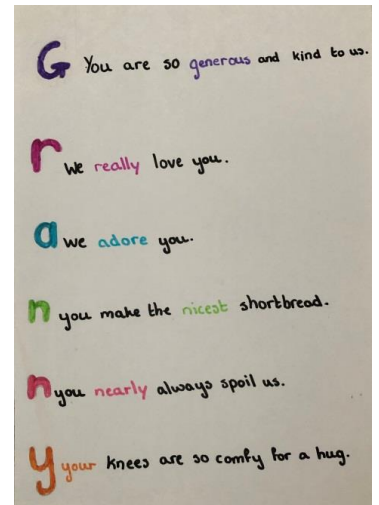 G You are so generous and kind to us.
r we really love you.
a we adore you.
n you make the nicest shortbread.
n you nearly always spoil us.
y your knees are so comfy for a hug.